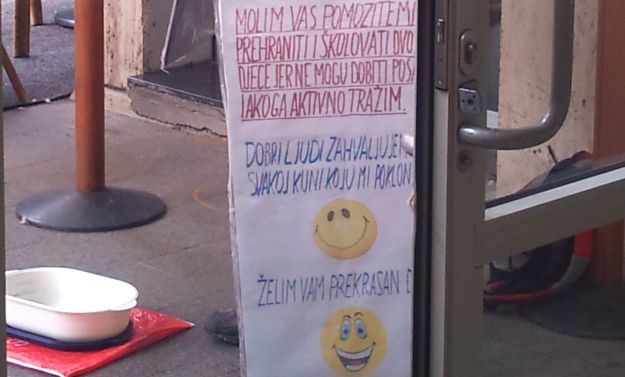 MOLIM VAS POMOZITE MI
PREHRANITI I ŠKOLOVATI DVO
DJECE JER NE MOGU DOBITI POS
IAKO GA AKTIVNO TRAŽIM.
DOBRI LJUDI ZAHVALJUJEM
SVAKOJ KUNI KOJU MI POKLON
ŽELIM VAM PREKRASAN D